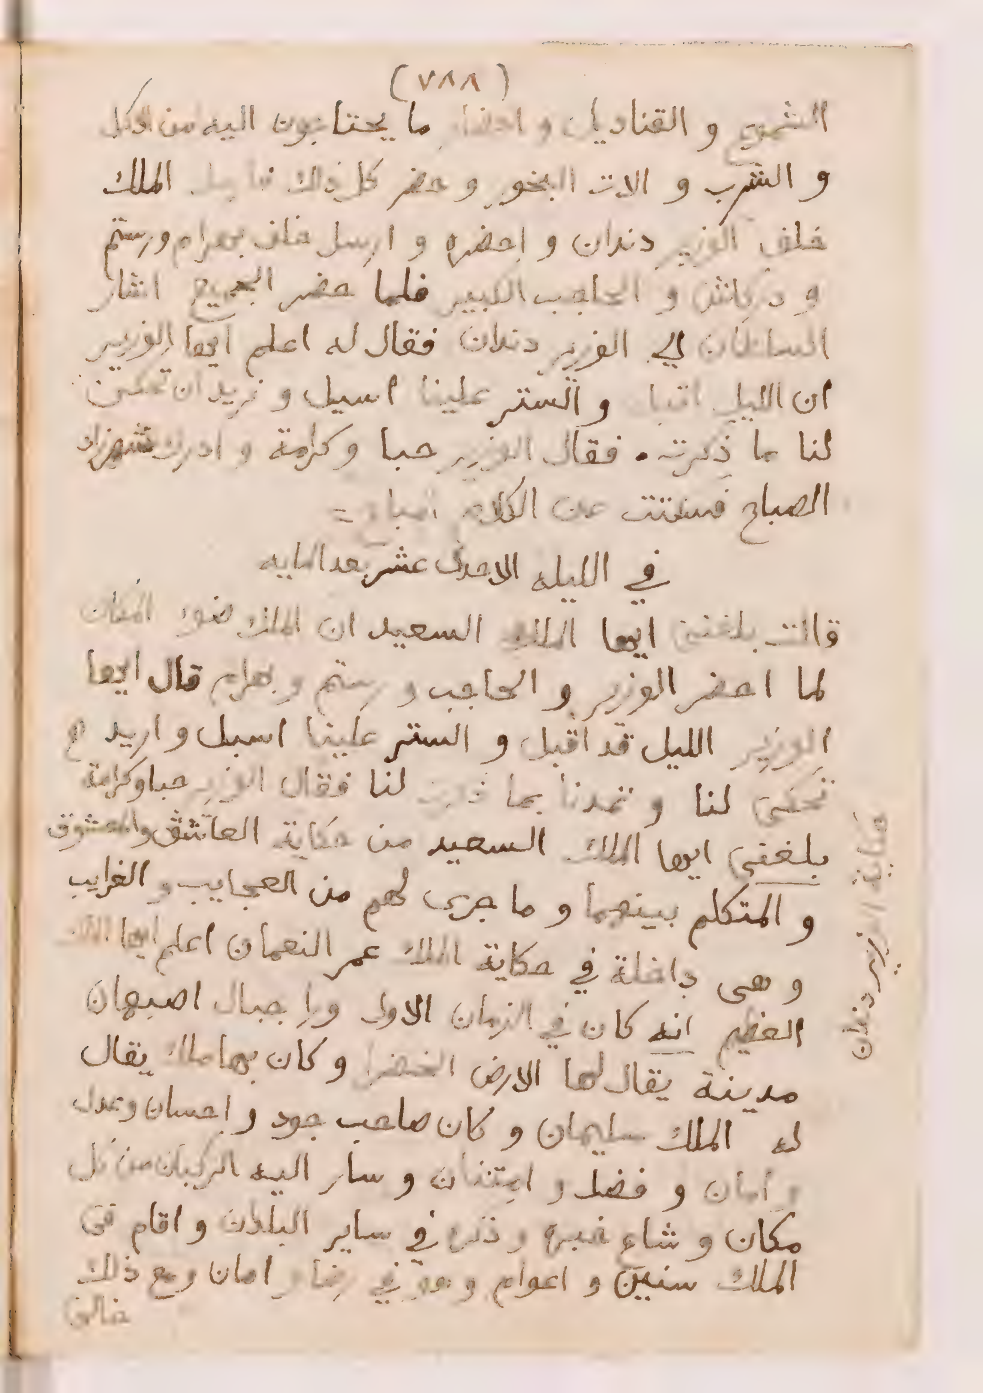 (٧٨٨)
الشموع و القناديل و احضار ما يحتاجون اليه من الاكل
و الشرب و الات البخور و حضر كل ذلك الملك
خلف الوزير دندان و احضره و ارسل خلف بهرام ورستم
و تركاش و الحاجب الكبير فلما حضر الجميع اشار
السلطان الي الوزير دندان فقال له اعلم ايها الوزير
ان الليل اقبل و الستر علينا اسبل و نريد ان تحكى
لنا ما ذكرته . فقال الوزير حبا و كرامة و ادرك شهرزاد
الصباح فسكتت عن الكلام المباح =
في الليله الاحدى عشر بعد المايه
قالت بلغنى ايها الملك السعيد ان الملك ضوء المكان
لما احضر الوزير و الحاجب و رستم و بهرام قال ايها
الوزير الليل قد اقبل و الستر علينا اسبل و اريد
تحكى لنا و تحدنا بما لنا فقال الوزير حبا وكرامة
بلغنى ايها الملك السعيد من حكاية العاشق والمعشوق
و المتكلم بينهما و ما جرى لهم من العجايب و الغرايب
و هى داخلة في حكاية الملك عمر النعمان اعلم ايها الملك
العظيم انه كان في الزمان الاول ورا جبال اصبهان
مدينة يقال لها الارض الخضرا و كان بها ملك يقال
له الملك سليمان و كان صاحب جود و احسان وعدل
و امان و فضل و امتنان و سار اليه الركبان من كل
مكان و شاع خبره و ذكره في ساير البلدان و اقام فى
الملك سنين و اعوام و هو في و امان و مع ذلك
خالى
حكاية الوزير دندان